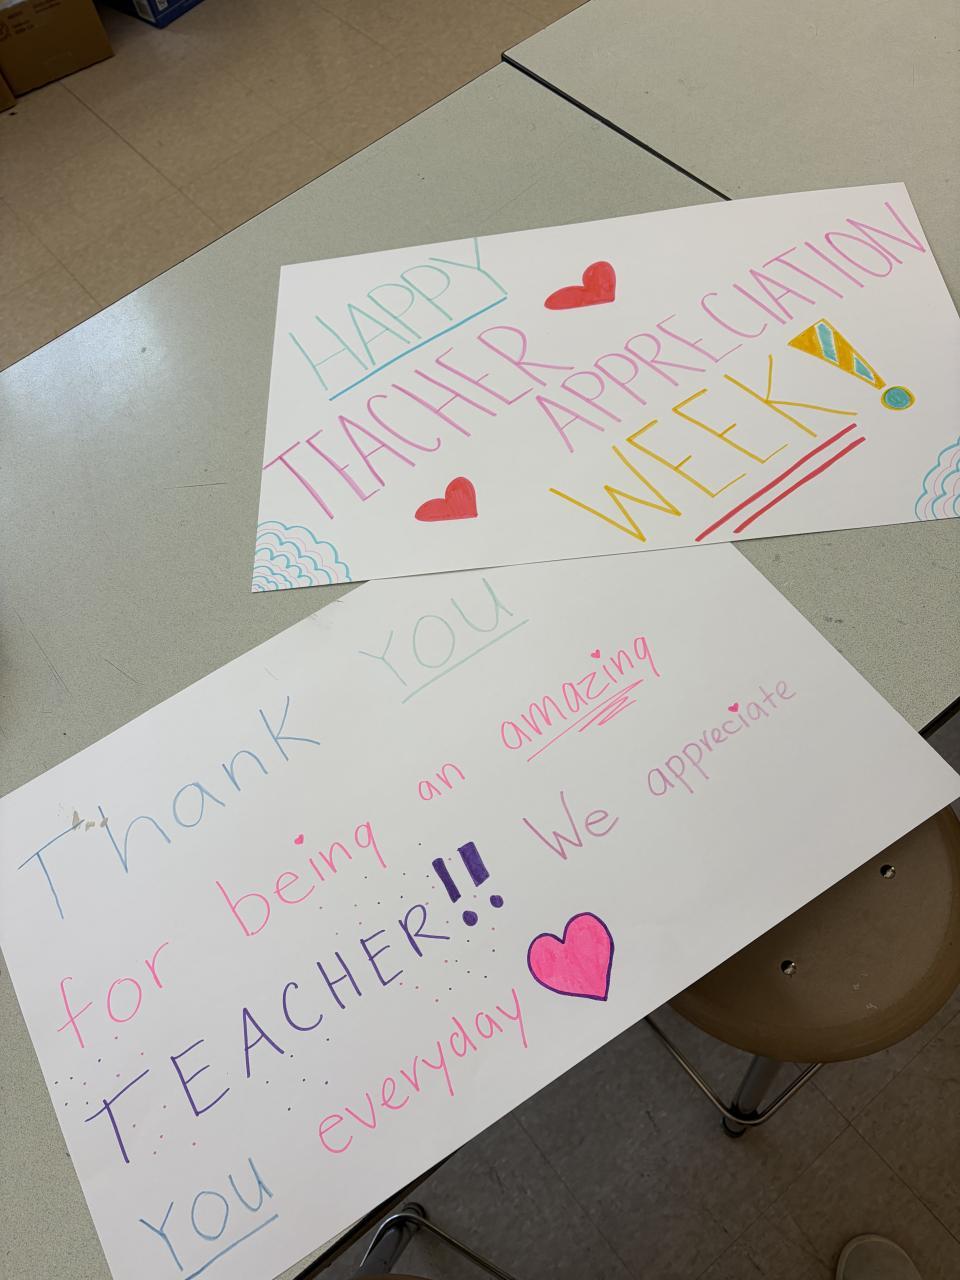 HAPPY
TEACHER APPRECIATION
WEEK!
Thank YOU
for being an amazing
TEACHER!! We appreciate
YOU everyday